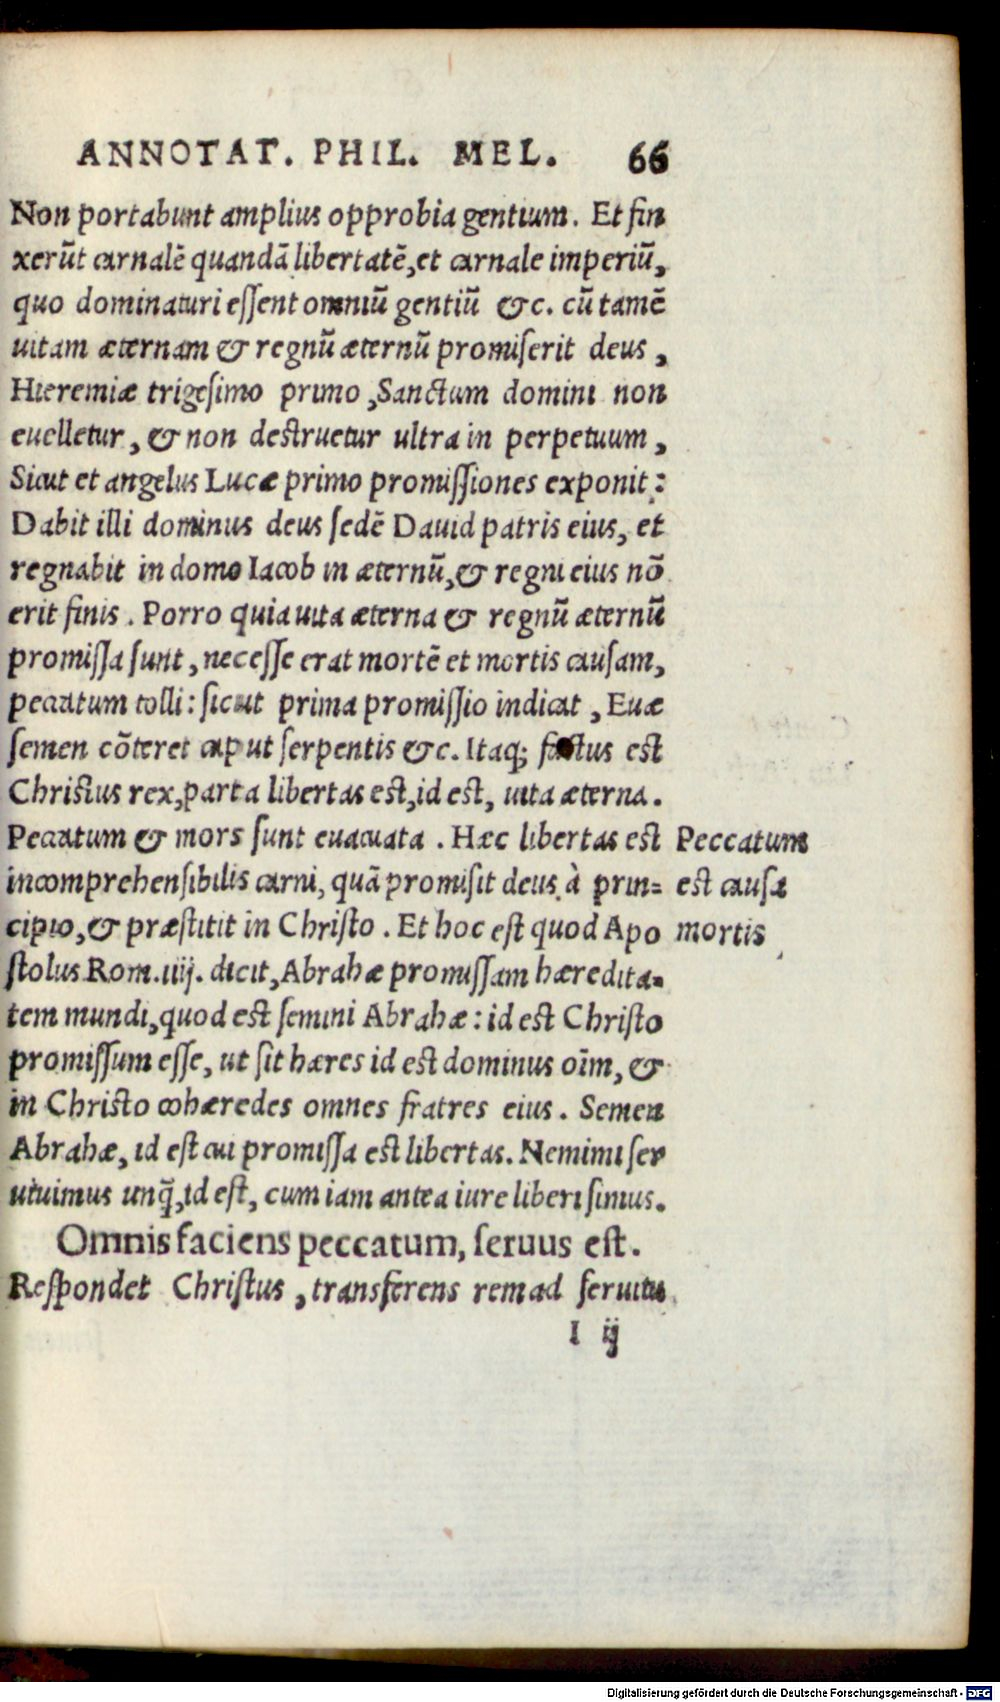 ANNOTAT. PHIL. MEL. 66
Non portabunt amplius opprobia gentium. Et fin
xerũt carnalẽ quandã libertatẽ, et carnale imperiũ,
quo dominaturi eſſent omniũ gentiũ &c. cũ tamẽ
uitam æternam & regnũ æternũ promiſerit deus,
Hieremiæ trigeſimo primo, Sanctum domini non
euelletur, & non deſtruetur ultra in perpetuum,
Sicut et angelus Lucæ primo promiſſiones exponit:
Dabit illi dominus deus ſedẽ Dauid patris eius, et
regnabit in domo Iacob in æternũ, & regni eius nõ
erit finis. Porro quia uita æterna & regnũ æternũ
promiſſa ſunt, neceſſe erat mortẽ et mortis cauſam,
peccatum tolli: ſicut prima promiſſio indicat, Euæ
ſemen cõteret caput ſerpentis &c. Itaq; factus eſt
Chriſtus rex, parta libertas eſt, id eſt, uita æterna.
Peccatum & mors ſunt euacuata. Hæc libertas eſt
incomprehenſibilis carni, quã promiſit deus à prin=
cipio, & præſtitit in Chriſto. Et hoc eſt quod Apo
ſtolus Rom. iiij. dicit, Abrahæ promiſſam hæredita=
tem mundi, quod eſt ſemini Abrahæ: id eſt Chriſto
promiſſum eſſe, ut ſit hæres id eſt dominus oĩm, &
in Chriſto cohæredes omnes fratres eius. Semen
Abrahæ, id eſt cui promiſſa eſt libertas. Nemini ſer
uiuimus unq̃, id eſt, cum iam antea iure liberi ſimus.
Omnis faciens peccatum, ſeruus eſt.
Reſpondet Chriſtus, transferens rem ad ſeruitu
I ij
Peccatum
eſt cauſa
mortis
Digitalisierung gefördert durch die Deutsche Forschungsgemeinschaft - DFG